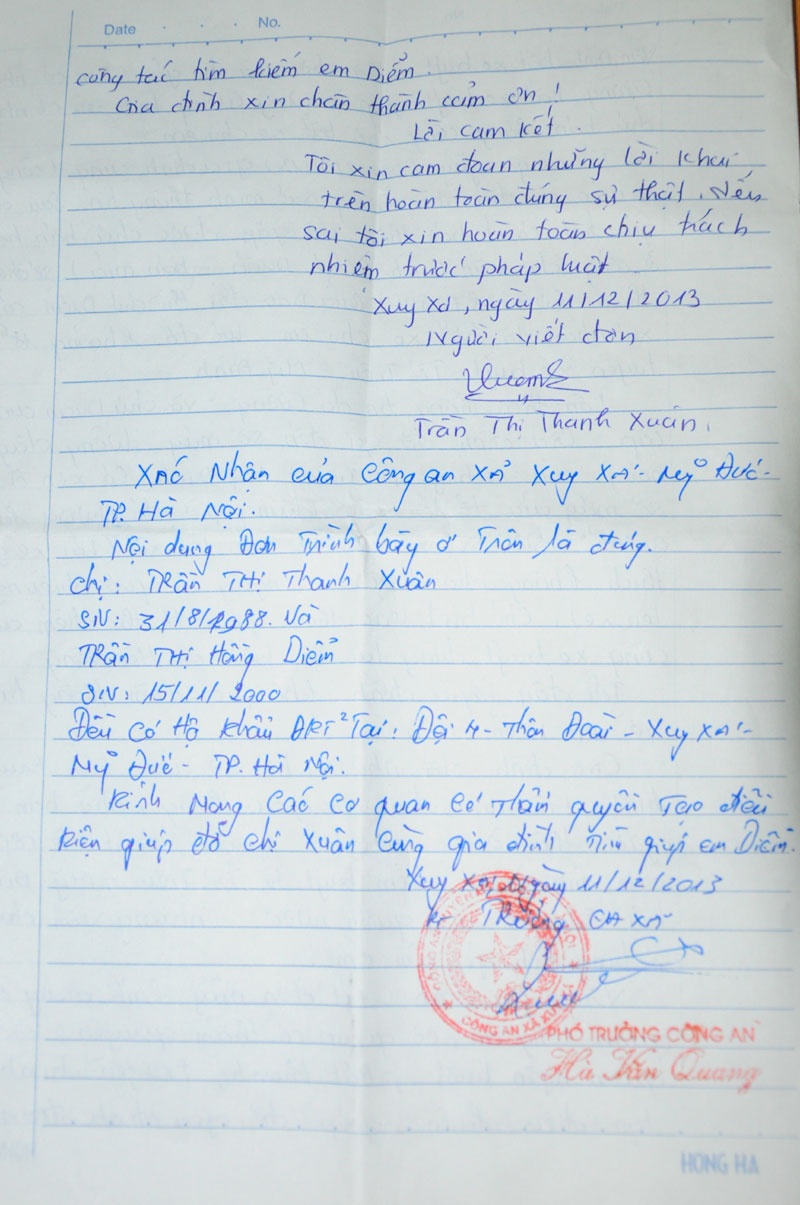 Date . . . No.
công tác tìm kiếm em Diểm.
Gia đình xin chân thành cảm ơn!
Lời cam kết.
Tôi xin cam đoan những lời khai
trên hoàn toàn đúng sự thật. Nếu
sai tôi xin hoàn toàn chịu trách
nhiệm trước pháp luật
Xuy Xá, ngày 11/12/2013
Người viết đơn
Trần Thị Thanh Xuân.
Xác Nhận của Công an xã Xuy Xá - Mỹ Đức -
TP. Hà Nội.
Nội dung Đơn Trình bày ở Trên là đúng.
Chị: Trần Thị Thanh Xuân
SN: 31/8/1988. Và
Trần Thị Hồng Diểm
SN: 15/11/2000
Đều có Hộ khẩu ĐKT² Tại: Đội 4 - Thôn Đoài - Xuy Xá -
Mỹ Đức - TP. Hà Nội.
Kính Mong Các Cơ quan Có Thẩm quyền Tạo điều
kiện giúp đỡ chị Xuân Cùng gia đình Tìm giúp em Diểm.
Xuy Xá, Ngày 11/12/2013
Trưởng CA Xã
CÔNG AN XÃ XUY XÁ
PHÓ TRƯỞNG CÔNG AN
Hà Văn Quang
HONG HA